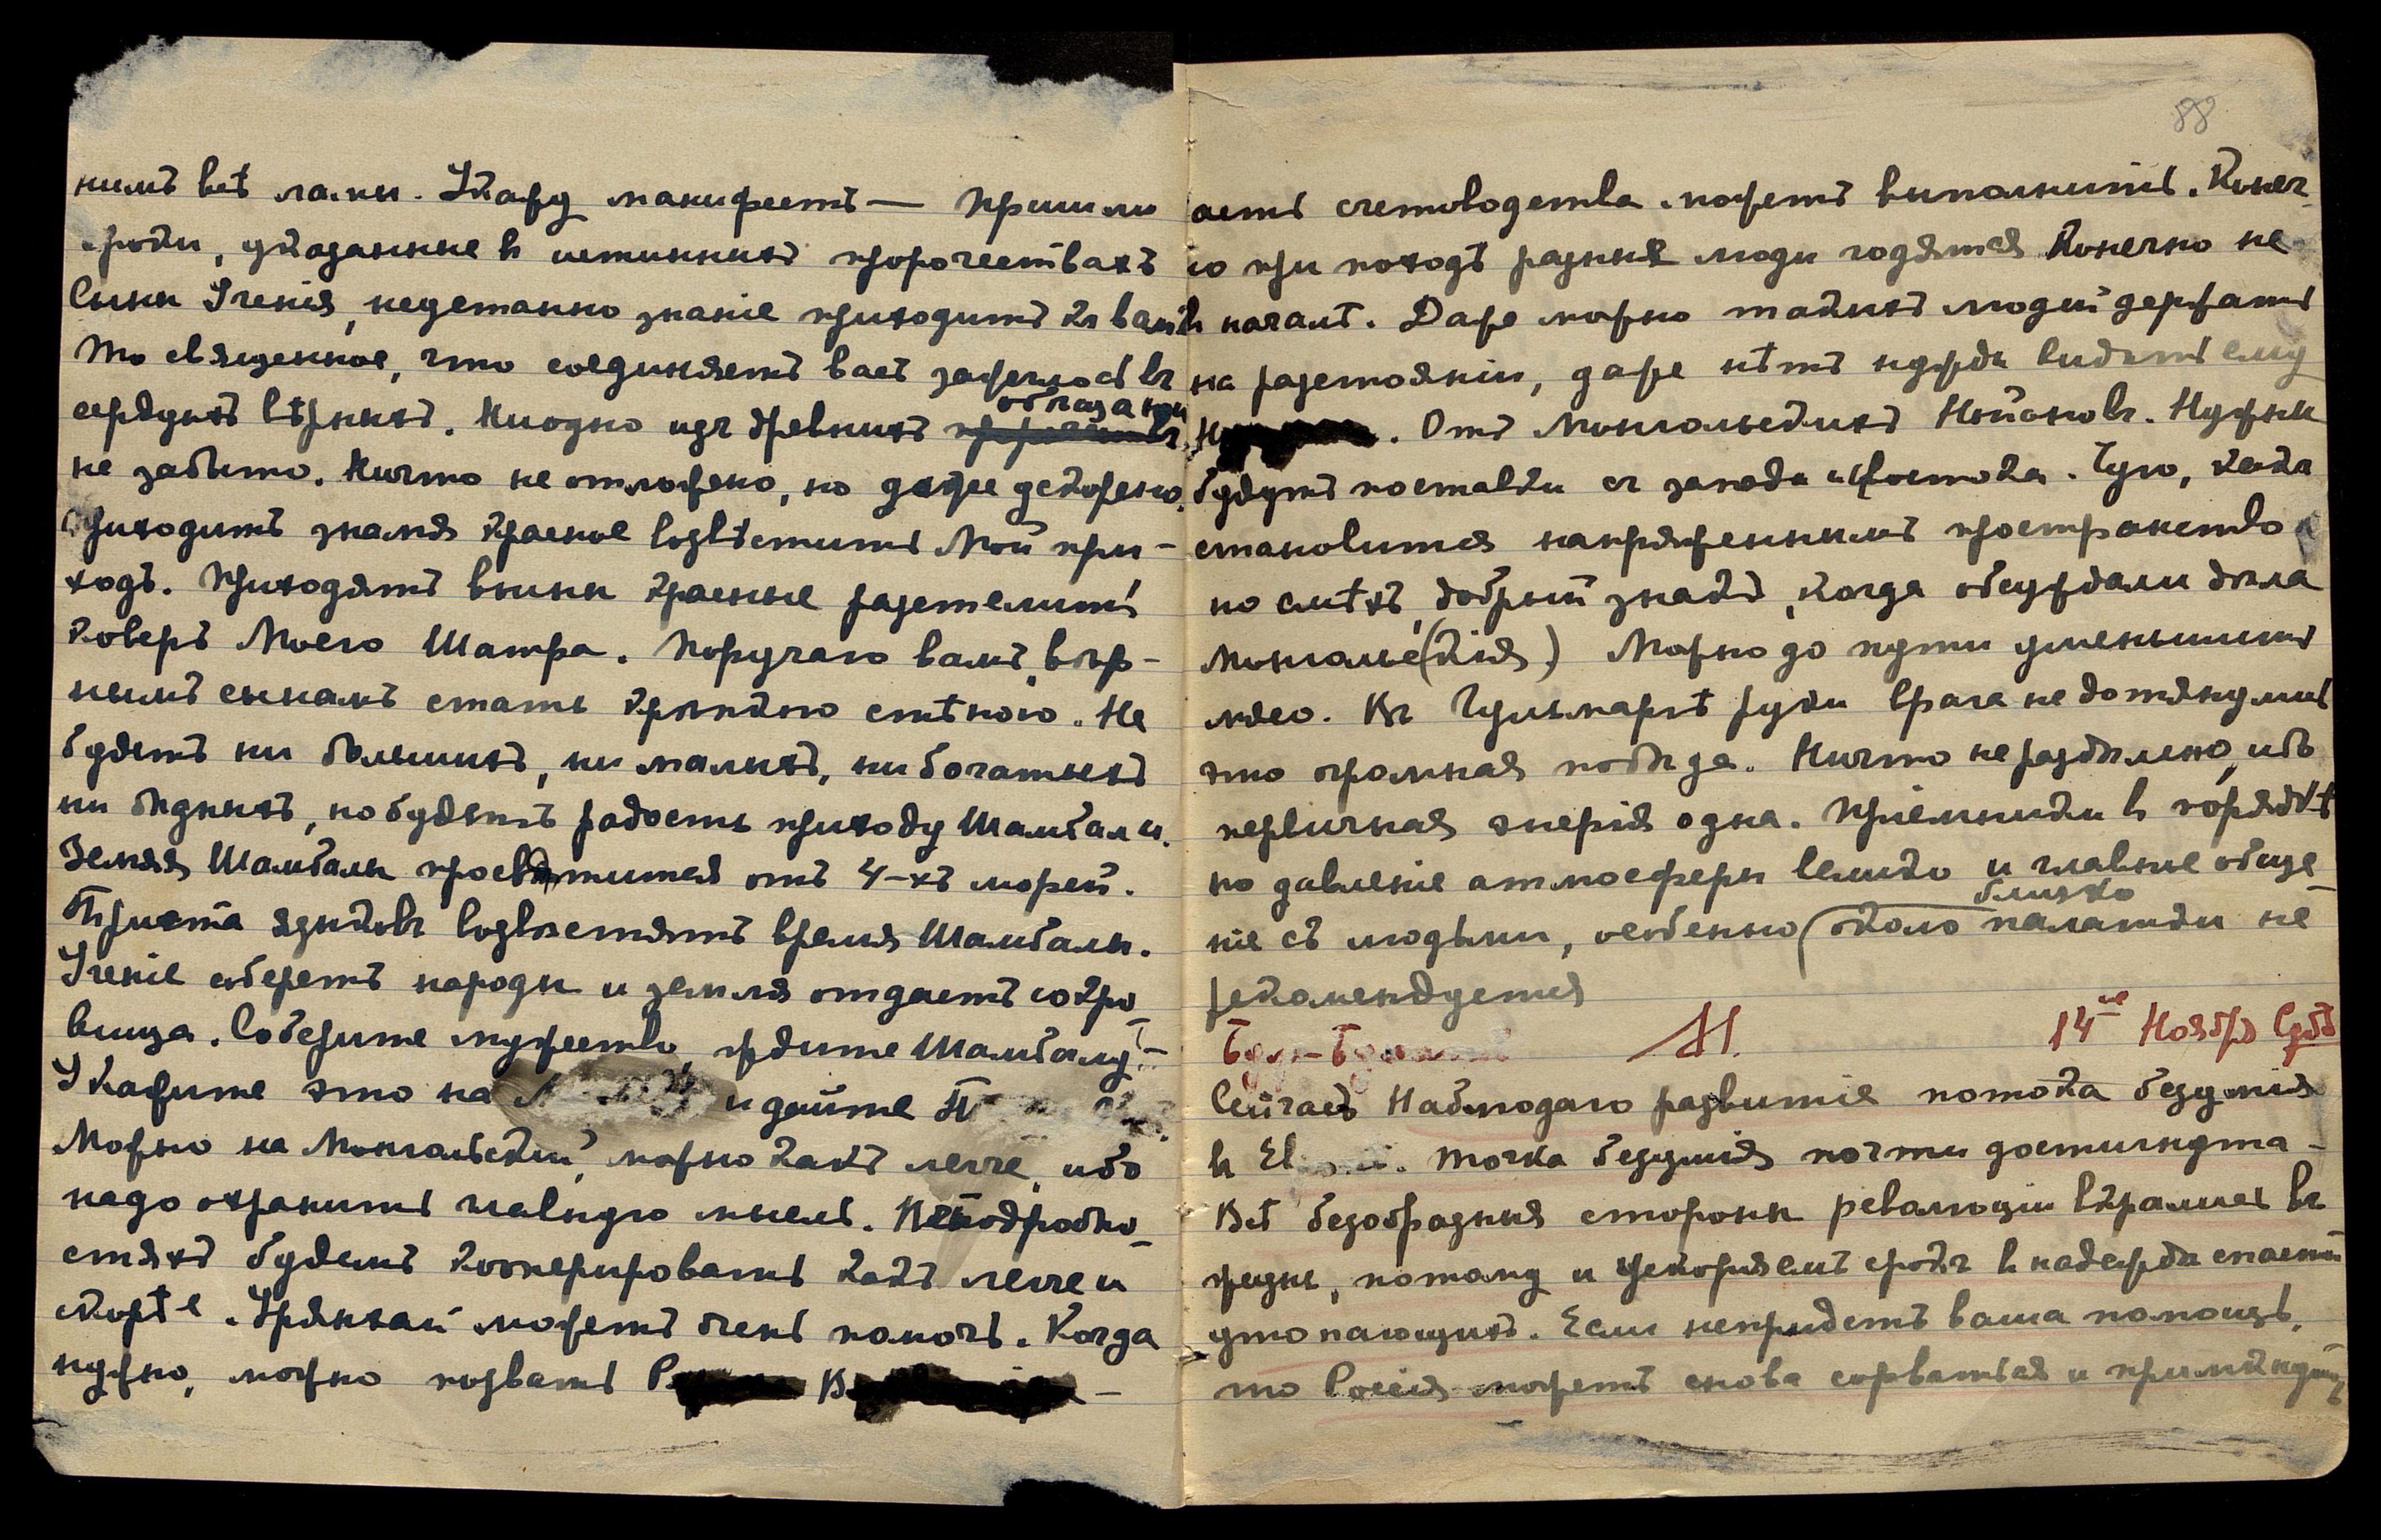 нимъ всѣ ламы. Укажу манифестъ — Пришли
сроки, указанные в истинныхъ пророчествахъ
Сыны Ученія, неустанно знаніе приходитъ къ вамъ
То священное, что соединяетъ васъ зажглось въ
сердцахъ вѣрныхъ. Ни одно изъ древнихъ пророчествъ
обѣщаній
не забыто. Ничто не отложено, но даже ускорено.
Приходитъ знамя красное возвѣстить Мой при-
ходъ. Приходятъ воины красные разстелить
коверъ Моего Шатра. Поручаю вамъ, вѣр-
нымъ сынамъ стать крѣпкою стѣною. Не
будетъ ни большихъ, ни малыхъ, ни богатыхъ
ни бѣдныхъ, но будетъ радость приходу Шамбалы.
Земля Шамбалы просвѣтится отъ 4-хъ морей.
языковъ возвѣстятъ время Шамбалы.
Ученіе соберетъ народы и земля отдаетъ сокро-
вища. Соберите мужество, ждите Шамбалу! —
Укажите это на и дайте
Можно на Монгольскій, можно какъ легче, ибо
надо охранить главную мысль. Въ подробно-
стяхъ будемъ кооперировать какъ легче и
скорѣе. Урянхай можетъ очень помочь. Когда
нужно, можно позвать
аетъ счетоводства можетъ выполнить. Конеч-
но при походѣ разныя люди годятся Конечно не
въ началѣ. Даже можно такихъ людей держать
на разстояніи, даже нѣтъ нужды видѣть ему
Отъ Монгольскихъ Нойоновъ. Нужны
будутъ поставки съ запада и востока. Чую, какъ
становится напряженнымъ пространство
но смѣхъ, добрый знакъ, когда обсуждали дѣла
Монгольс(кія) Можно до пути уменьшить
мясо. Въ руки врага не дотянулись
это огромная побѣда. Ничто не раздѣлено, ибо
первичная энергія одна. Пріемники в порядкѣ
но давленіе атмосферы велико и главное обще-
ніе съ людьми, особенно (около палатки не
близко
рекомендуется
М. 14е Ноябр Срд
Сейчасъ Наблюдаю развитіе потока безумія
в Точка безумія почти достигнута —
Всѣ безобразныя стороны революціи вкрались въ
жизнь, потому и ускоряемъ сроки в надеждѣ спасти
утопающихъ. Если не придетъ ваша помощь,
то Россія можетъ снова сорваться и
88